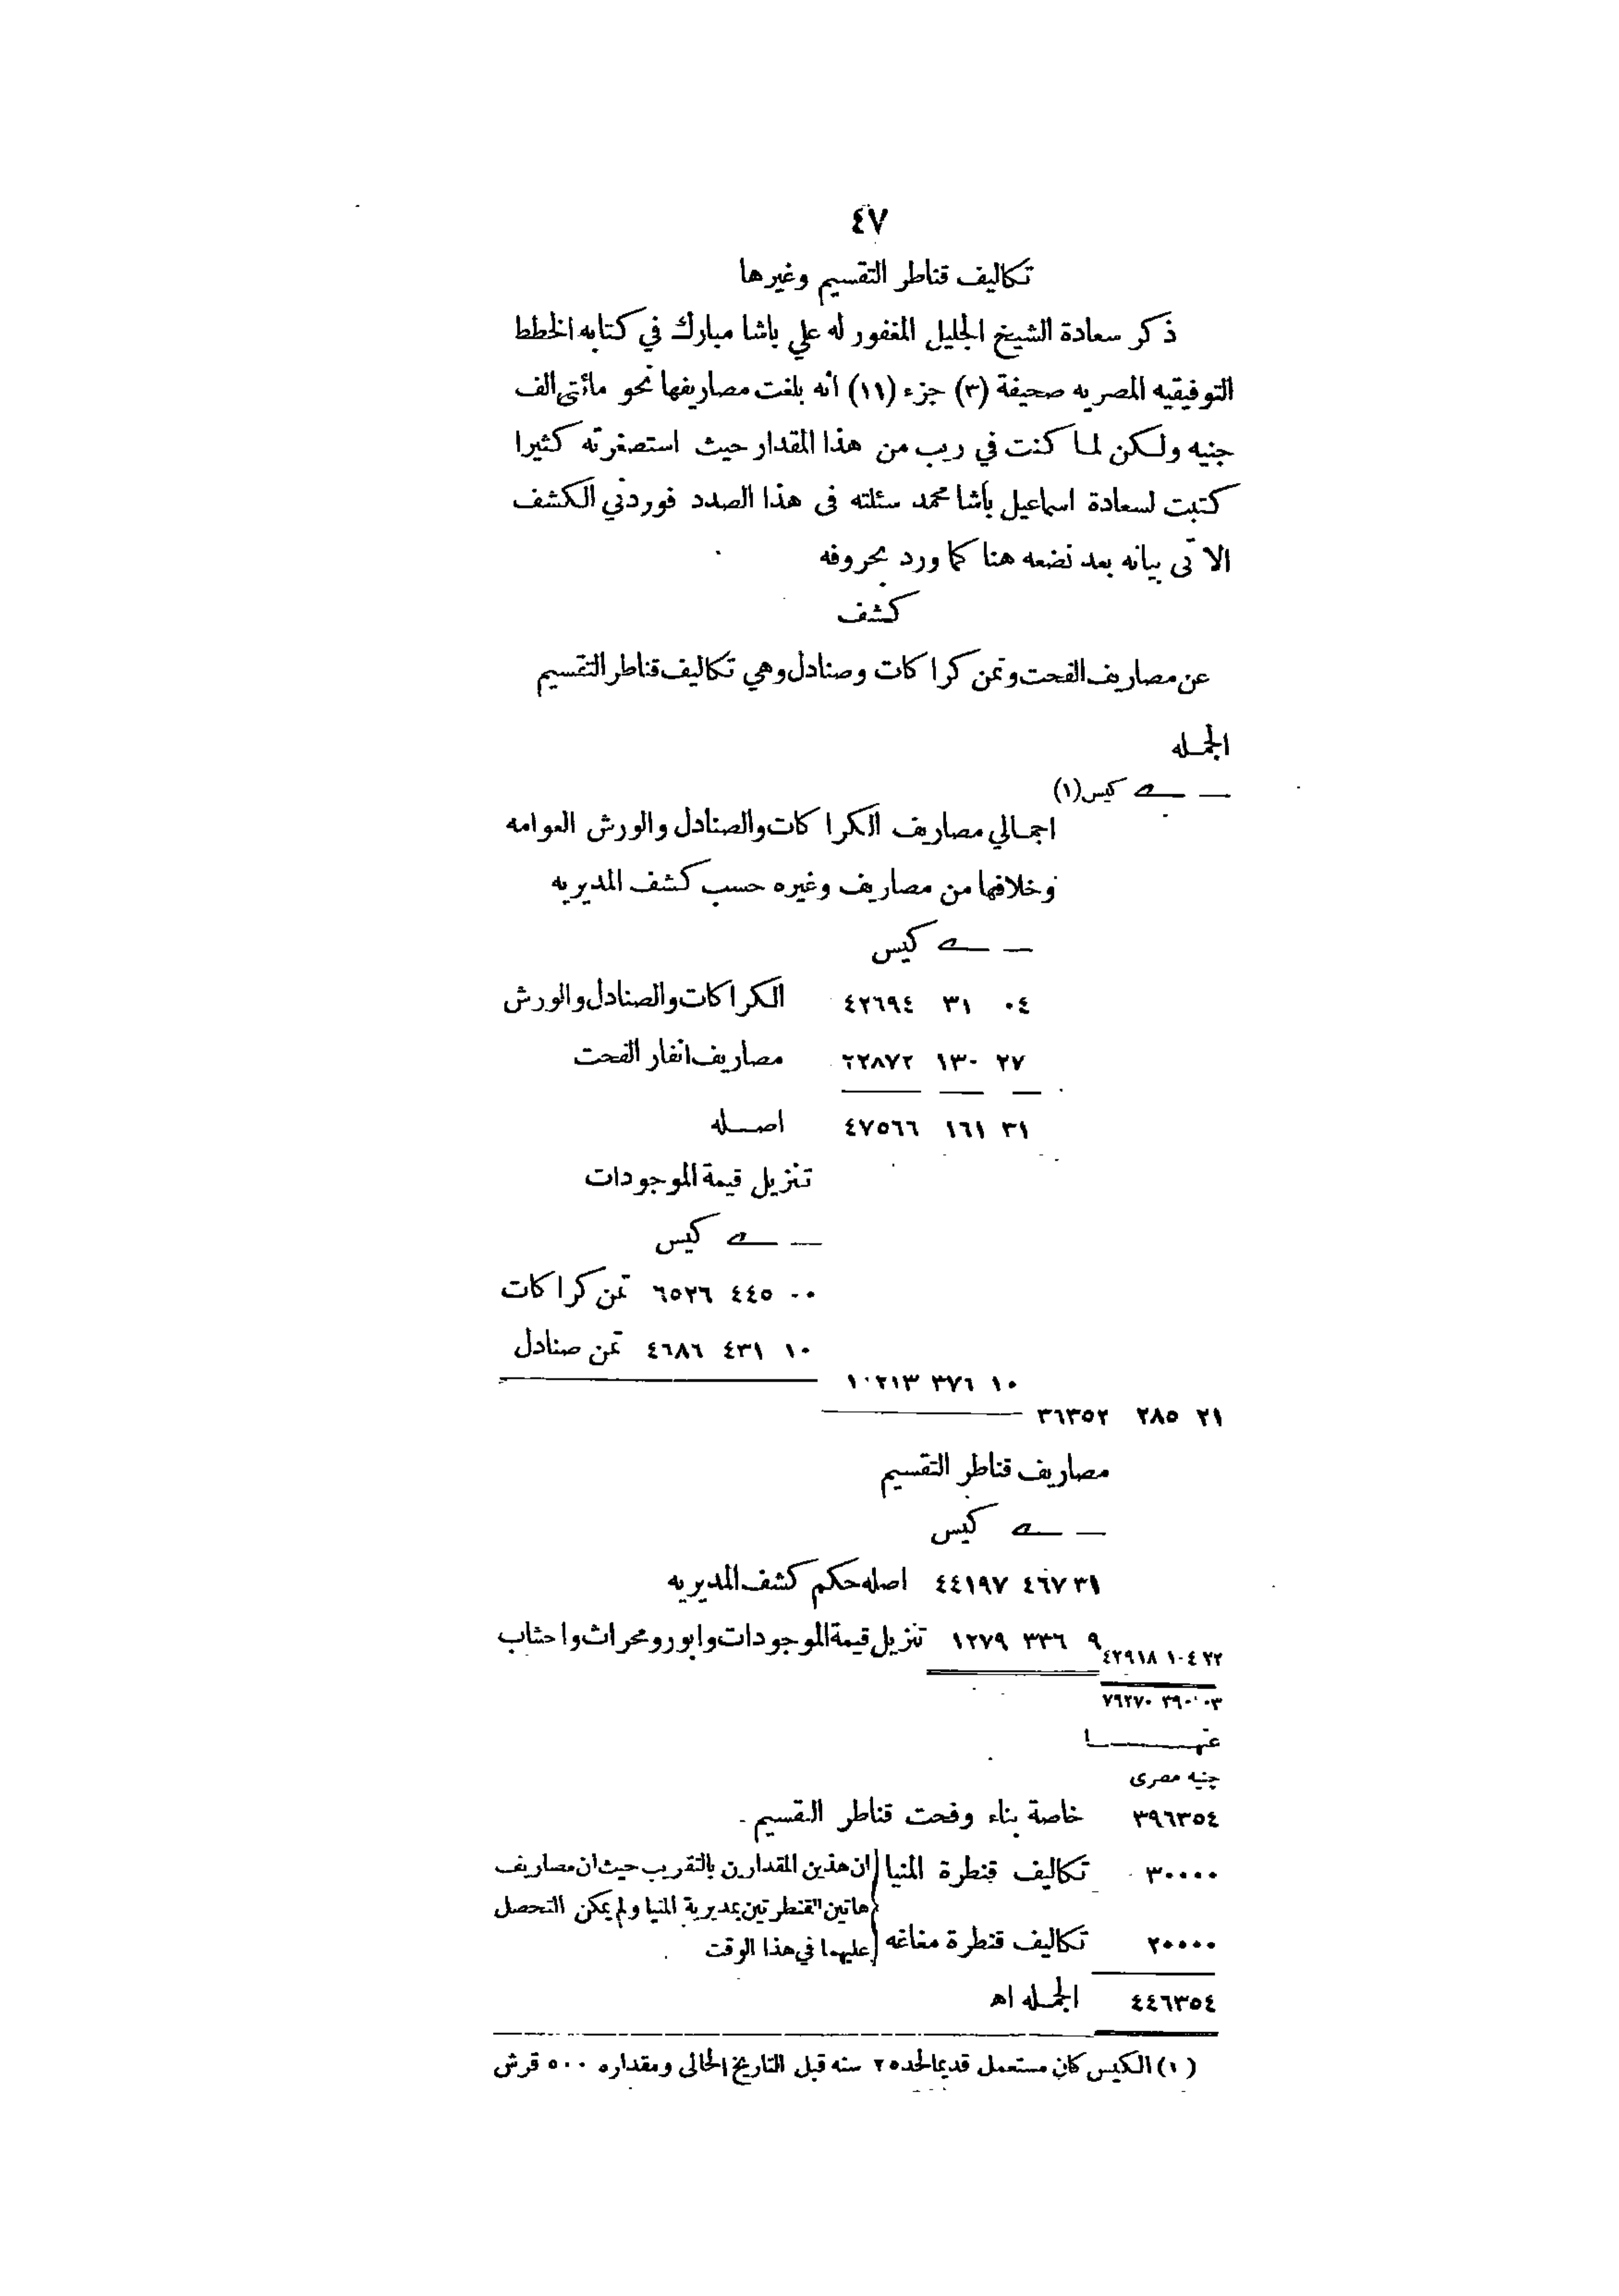 ٤٧
تكاليف قناطر التقسيم وغيرها
ذكر سعادة الشيخ الجليل المغفور له علي باشا مبارك في كتابه الخطط
التوفيقيه المصريه صحيفة (٣) جزء (١١) انه بلغت مصاريفها نحو مائتى الف
جنيه ولكن لما كنت في ريب من هذا المقدار حيث استصغرته كثيرا
كتبت لسعادة اسماعيل باشا محمد سئلته فى هذا الصدد فوردني الكشف
الاتى بيانه بعد نضعه هنا كما ورد بحروفه
كشف
عن مصاريف الفحت وثمن كراكات وصنادل وهي تكاليف قناطر التقسيم
الجمله
كيس (١)
اجمالي مصاريف الكراكات والصنادل والورش العوامه
وخلافها من مصاريف وغيره حسب كشف المديريه
كيس
٠٤ ٣١ ٤٢٦٩٤ الكراكات والصنادل والورش
٢٧ ١٣٠ ٢٢٨٧٢ مصاريف انفار الفحت
٣١ ١٦١ ٤٧٥٦٦ اصله
تنزيل قيمة الموجودات
كيس
٠٠ ٤٤٥ ٦٥٢٦ ثمن كراكات
١٠ ٤٣١ ٤٦٨٦ ثمن صنادل
١٠ ٣٧٦ ١٠٢١٣
٢١ ٢٨٥ ٣٦٣٥٢
مصاريف قناطر التقسيم
كيس
٣١ ٤٦٧ ٤٤١٩٧ اصله حكم كشف المديريه
٩ ٣٣٦ ١٢٧٩ تنزيل قيمة الموجودات وابور ومحراث واخشاب
٢٢ ١٠٤ ٤٢٩١٨
٠٣ ٣٩٠ ٧٩٢٧٠
عنها
جنيه مصرى
٣٩٦٣٥٤ خاصة بناء وفحت قناطر التقسيم
٣٠٠٠٠ تكاليف قنطرة المنيا ان هذين المقدارين بالتقريب حيث ان مصاريف
هاتين القنطرتين بمديرية المنيا ولم يمكن التحصل
٢٠٠٠٠ تكاليف قنطرة مغاغه عليهما في هذا الوقت
٤٤٦٣٥٤ الجمله اه
(١) الكيس كان مستعمل قديما لحد ٢٥ سنه قبل التاريخ الحالى ومقداره ٥٠٠ قرش